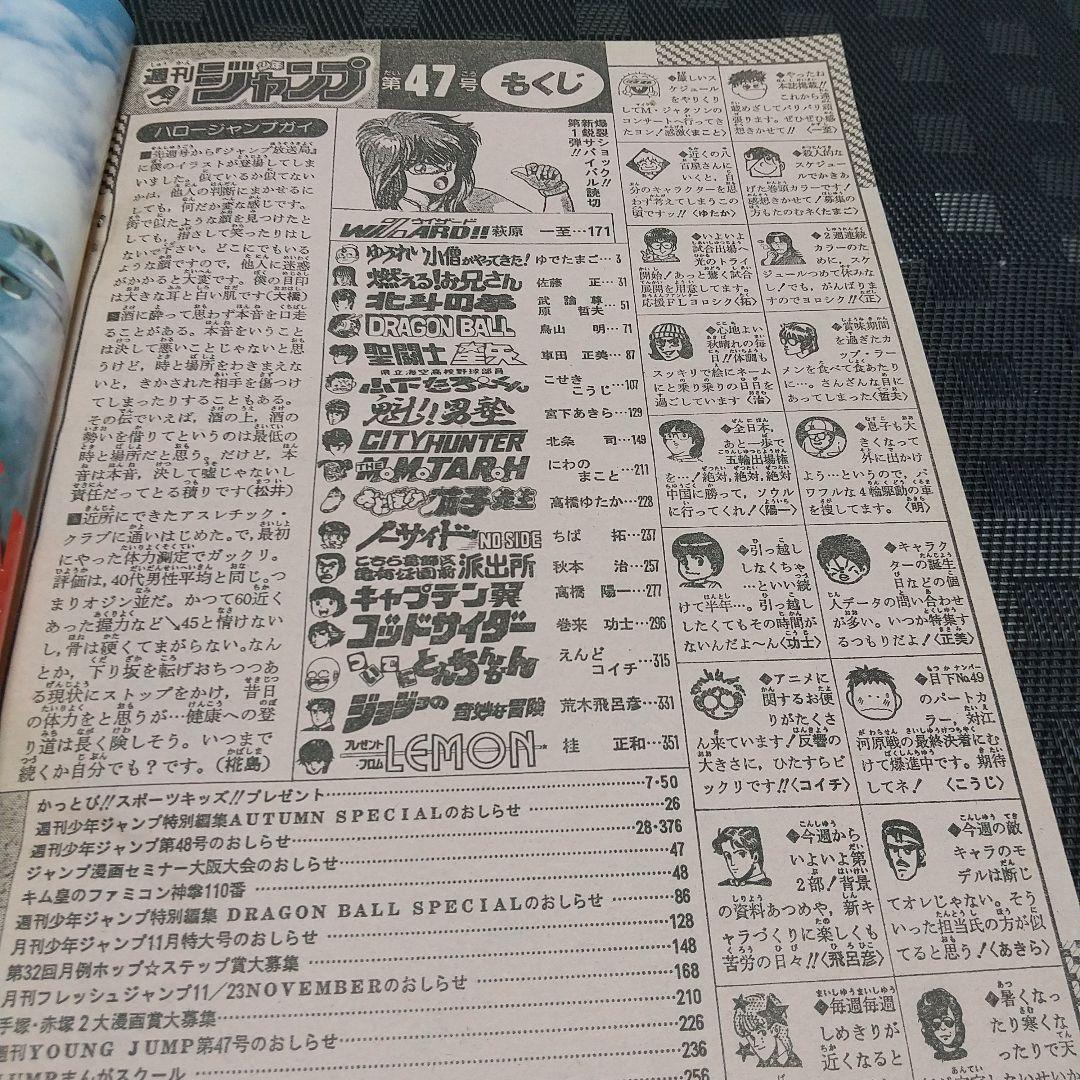 週刊少年ジャンプ 第47号 もくじ
ハロージャンプガイ
■先週号から『ジャンプ放送局』
に僕のイラストが登場してしま
いました。似ているか似てない
かは、他人の判断にまかせるに
しても、何だか変な感じです。
街で似たような顔を見つけたと
しても、指さして笑ったりはし
ないで下さい。どこにでもいる
ような顔ですので、他人に迷惑
がかかると大変です。僕の目印
は大きな耳と白い肌です(大橋)
■酒に酔って思わず本音を口走
ることがある。本音をいうこと
は決して悪いことじゃないと思
うけど、時と場所をわきまえな
いと、きかされた相手を傷つけ
てしまったりすることもある。
その伝でいえば、酒の上、酒の
勢いを借りてというのは最低の
時と場所だと思う。だけど、本
音は本音、決して嘘じゃないし
責任だってとる積りです(松井)
■近所にできたアスレチック・
クラブに通いはじめた。で、最初
にやった体力測定でガックリ。
評価は、40代男性平均と同じ。つ
まりオジン並だ。かつて60近く
あった握力など↘45と情けない
し、骨は硬くてまがらない。なん
とか、下り坂を転げおちつつあ
る現状にストップをかけ、昔日
の体力をと思うが…健康への登
り道は長く険しそう。いつまで
続くか自分でも？です。(椛島)
爆裂ショック!!
新鋭サバイバル読切
第1弾!!
ウイザード
WIZARD!! 萩原 一至…171
ゆうれい小僧がやってきた! ゆでたまご…3
燃える!お兄さん 佐藤 正…31
北斗の拳 武論尊 原哲夫…51
DRAGON BALL 鳥山 明…71
聖闘士星矢 車田 正美…87
県立海空高校野球部員
山下たろーくん こせき こうじ…107
魁!!男塾 宮下あきら…129
CITY HUNTER 北条 司…149
THE MOMOTAROH にわの まこと…211
高橋ゆたか…228
ノーサイド NO SIDE ちば 拓…237
こちら葛飾区亀有公園前派出所 秋本 治…257
キャプテン翼 高橋 陽一…277
ゴッドサイダー 巻来 功士…296
ついでにとんちんかん えんど コイチ…315
ジョジョの奇妙な冒険 荒木飛呂彦…331
プレゼント フロム LEMON 桂 正和…351
かっとび!!スポーツキッズ!!プレゼント…7・50
週刊少年ジャンプ特別編集AUTUMN SPECIALのおしらせ…26
週刊少年ジャンプ第48号のおしらせ…28・376
ジャンプ漫画セミナー大阪大会のおしらせ…47
キム皇のファミコン神拳110番…48
週刊少年ジャンプ特別編集 DRAGON BALL SPECIALのおしらせ…86
月刊少年ジャンプ11月特大号のおしらせ…128
第32回月例ホップ☆ステップ賞大募集…148
月刊フレッシュジャンプ11/23NOVEMBERのおしらせ…168
手塚・赤塚2大漫画賞大募集…210
週刊YOUNG JUMP第47号のおしらせ…226
JUMPまんがスクール…236
256
◆厳しいス
ケジュール
をやりくり
してM・ジャクソンの
コンサートへ行ってき
たヨン!感激〈まこと〉
◆やったね
本誌掲載!!
これから連
載めざしてバリバリ頑
張ります。ぜひぜひ感
想きかせて!!〈一至〉
◆近くの八
百屋さんに
いくと、自
分のキャラクターを思
わず答えてしまうこの
頃ですッ!!〈ゆたか〉
◆殺人的な
スケジュー
ルでかきあ
げた巻頭カラーです!
感想きかせて!募集の
方もたのむネ〈たまご〉
◆いよいよ
試合出場へ
光のトライ
開始!あっと驚く試合
展開を用意してます。
応援ヨロシク〈拓〉
◆2週連続
カラーのた
めに、スケ
ジュールつめて休みな
し!でも、がんばりま
すのでヨロシク!!〈正〉
◆心地よい
秋晴れの毎
日!!体調も
スッキリで絵にネーム
にと乗り乗りの日日を
過ごしています〈治〉
◆賞味期間
を過ぎたカ
ップ・ラー
メンを食べて食あたり
に…。さんざんな目に
あってしまった〈哲夫〉
◆全日本、
あと一歩で
五輪出場権
を…!絶対、絶対、絶対
中国に勝って、ソウル
に行ってくれ!〈陽一〉
◆息子も大
きくなって
外に出かけ
よう…というので、パ
ワフルな4輪駆動の車
を捜してます。〈明〉
◆引っ越し
しなくちゃ
…といい続
けて半年…。引っ越し
したくてもその時間が
ないんだよ〜ん〈功士〉
◆キャラク
ターの誕生
日などの個
人データの問い合わせ
が多い。いつか特集す
るつもりだよ!〈正美〉
◆アニメに
関するお便
りがたくさ
ん来ています!反響の
大きさに、ひたすらビ
ックリです!!〈コイチ〉
◆目下No.49
のパートカ
ラー、対江
河原戦の最終決着にむ
けて爆進中です。期待
してネ!〈こうじ〉
◆今週から
いよいよ第
2部!背景
の資料あつめや、新キ
ャラづくりに楽しくも
苦労の日々!!〈飛呂彦〉
◆今週の敵
キャラのモ
デルは断じ
てオレじゃない。そう
いった担当氏の方が似
てると思う!〈あきら〉
◆毎週毎週
しめきりが
近くなると
◆暑くなっ
たり寒くな
ったりで天